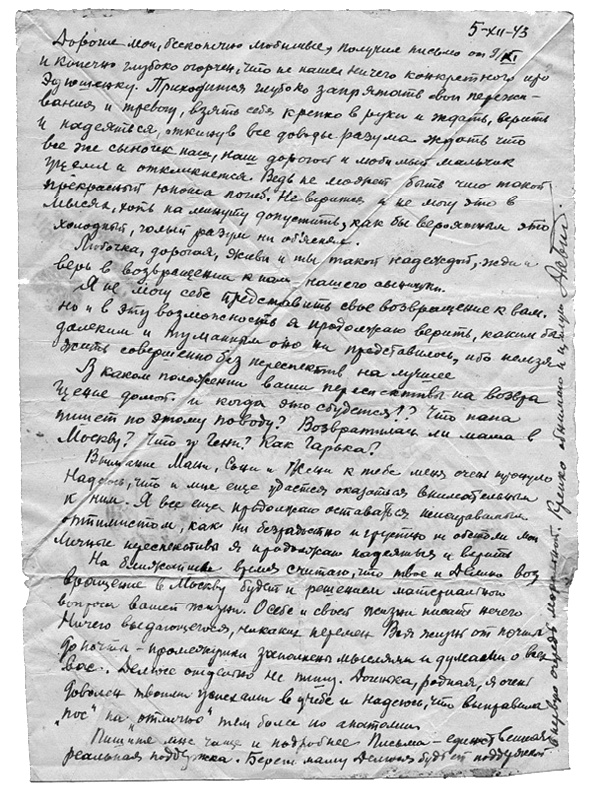 5-XII-43
Дорогие мои, бесконечно любимые, получил письмо от 9/XI
и конечно глубоко огорчен, что не нашел ничего конкретного про
Эдюшеньку. Приходится глубоко запрятать свои пережи-
вания и тревогу, взять себя крепко в руки и ждать, верить
и надеяться, откинув все доводы разума ждать что
все же сыночек наш, наш дорогой и любимый мальчик
уцелел и откликнется. Ведь не может быть чтоб такой
прекрасный юноша погиб. Не верится и не могу это в
мыслях, хоть на минуту допустить, как бы вероятным это
холодный, голый разум ни объяснял.
Любочка, дорогая, живи и ты такой надеждой, жди и
верь в возвращении к нам нашего сыночки.
Я не могу себе представить свое возвращение к вам,
но и в эту возможность я продолжаю верить, каким бы
далеким и туманным оно ни представилось, ибо нельзя
жить совершенно без перспектив на лучшее
В каком положении ваши перспективы на возвра
щение домой и когда это сбудется!? Что папа
пишет по этому поводу? Возвратилась ли мама в
Москву? Что у Гени? Как Гарька?
Внимание Мани, Сони и Жени к тебе меня очень тронуло
Надеюсь, что и мне еще удастся оказаться внимательным
к ним. Я все еще продолжаю оставаться неисправимым
оптимистом, как ни безрадостно и грустно ни обстоят мои
личные перспективы я продолжаю надеяться и верить
На ближайшее время считаю, что твое и Делино воз
вращение в Москву будет и решением материального
вопроса вашей жизни. О себе и своей жизни писать нечего
Ничего выдающегося, никаких перемен Вся жизнь от почты
до почты - промежутки заполнены мыслями и думами о всех
вас. Делюсе отдельно не пишу. Доченька, родная, я очень
доволен твоими успехами в учебе и надеюсь, что выправила
"пос" на "отлично" тем более по анатомии
Пишите мне чаще и подробнее Письма - единственная
реальная поддержка. Береги маму Делюся будь ей поддержкой
в первую очередь моральной. Крепко обнимаю и целую Давид.